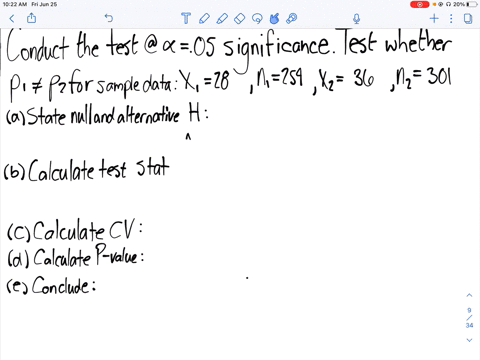 10:22 AM Fri Jun 25
20%
Conduct the test @ α=.05 significance. Test whether
P₁ ≠ P₂ for sample data: X₁=28 , n₁=254 , X₂= 36 , n₂= 301
(a) State null and alternative H:
^
(b) Calculate test stat
(c) Calculate CV:
(d) Calculate P-value:
(e) Conclude:
9
/
34